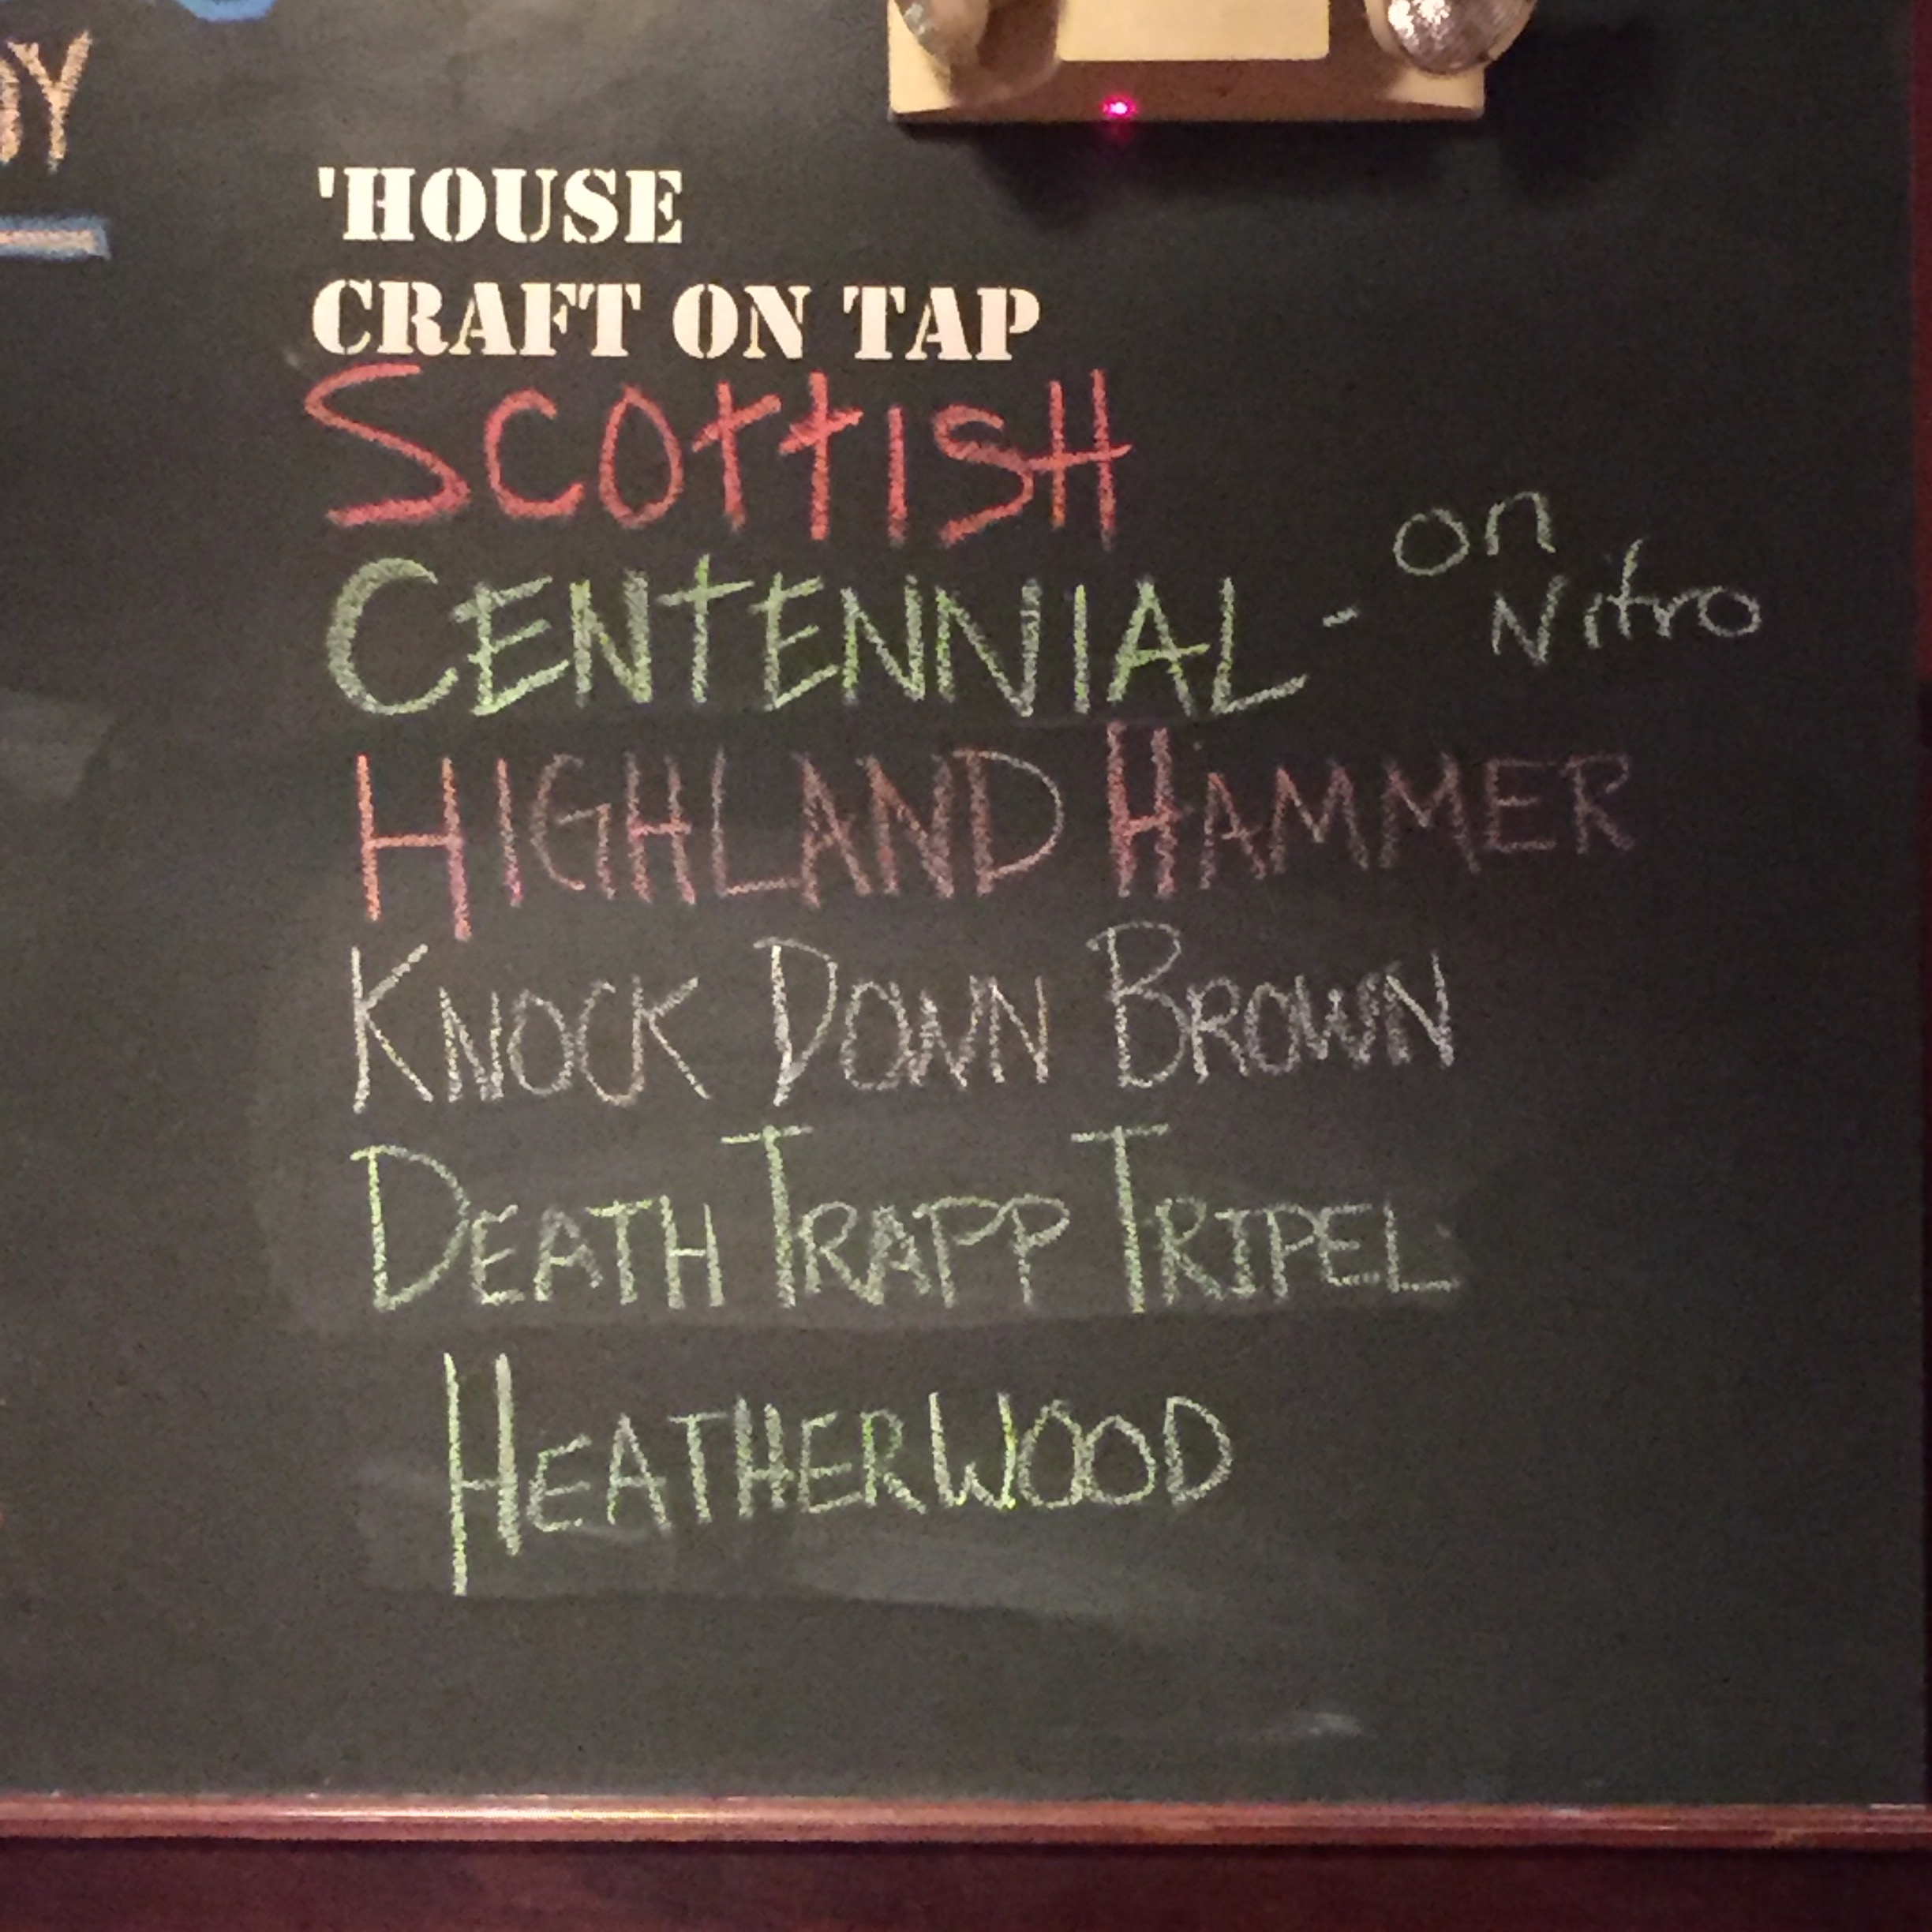 'HOUSE
CRAFT ON TAP
SCOTTISH
CENTENNIAL - on Nitro
HIGHLAND HAMMER
KNOCK DOWN BROWN
DEATH TRAPP TRIPEL
HEATHERWOOD